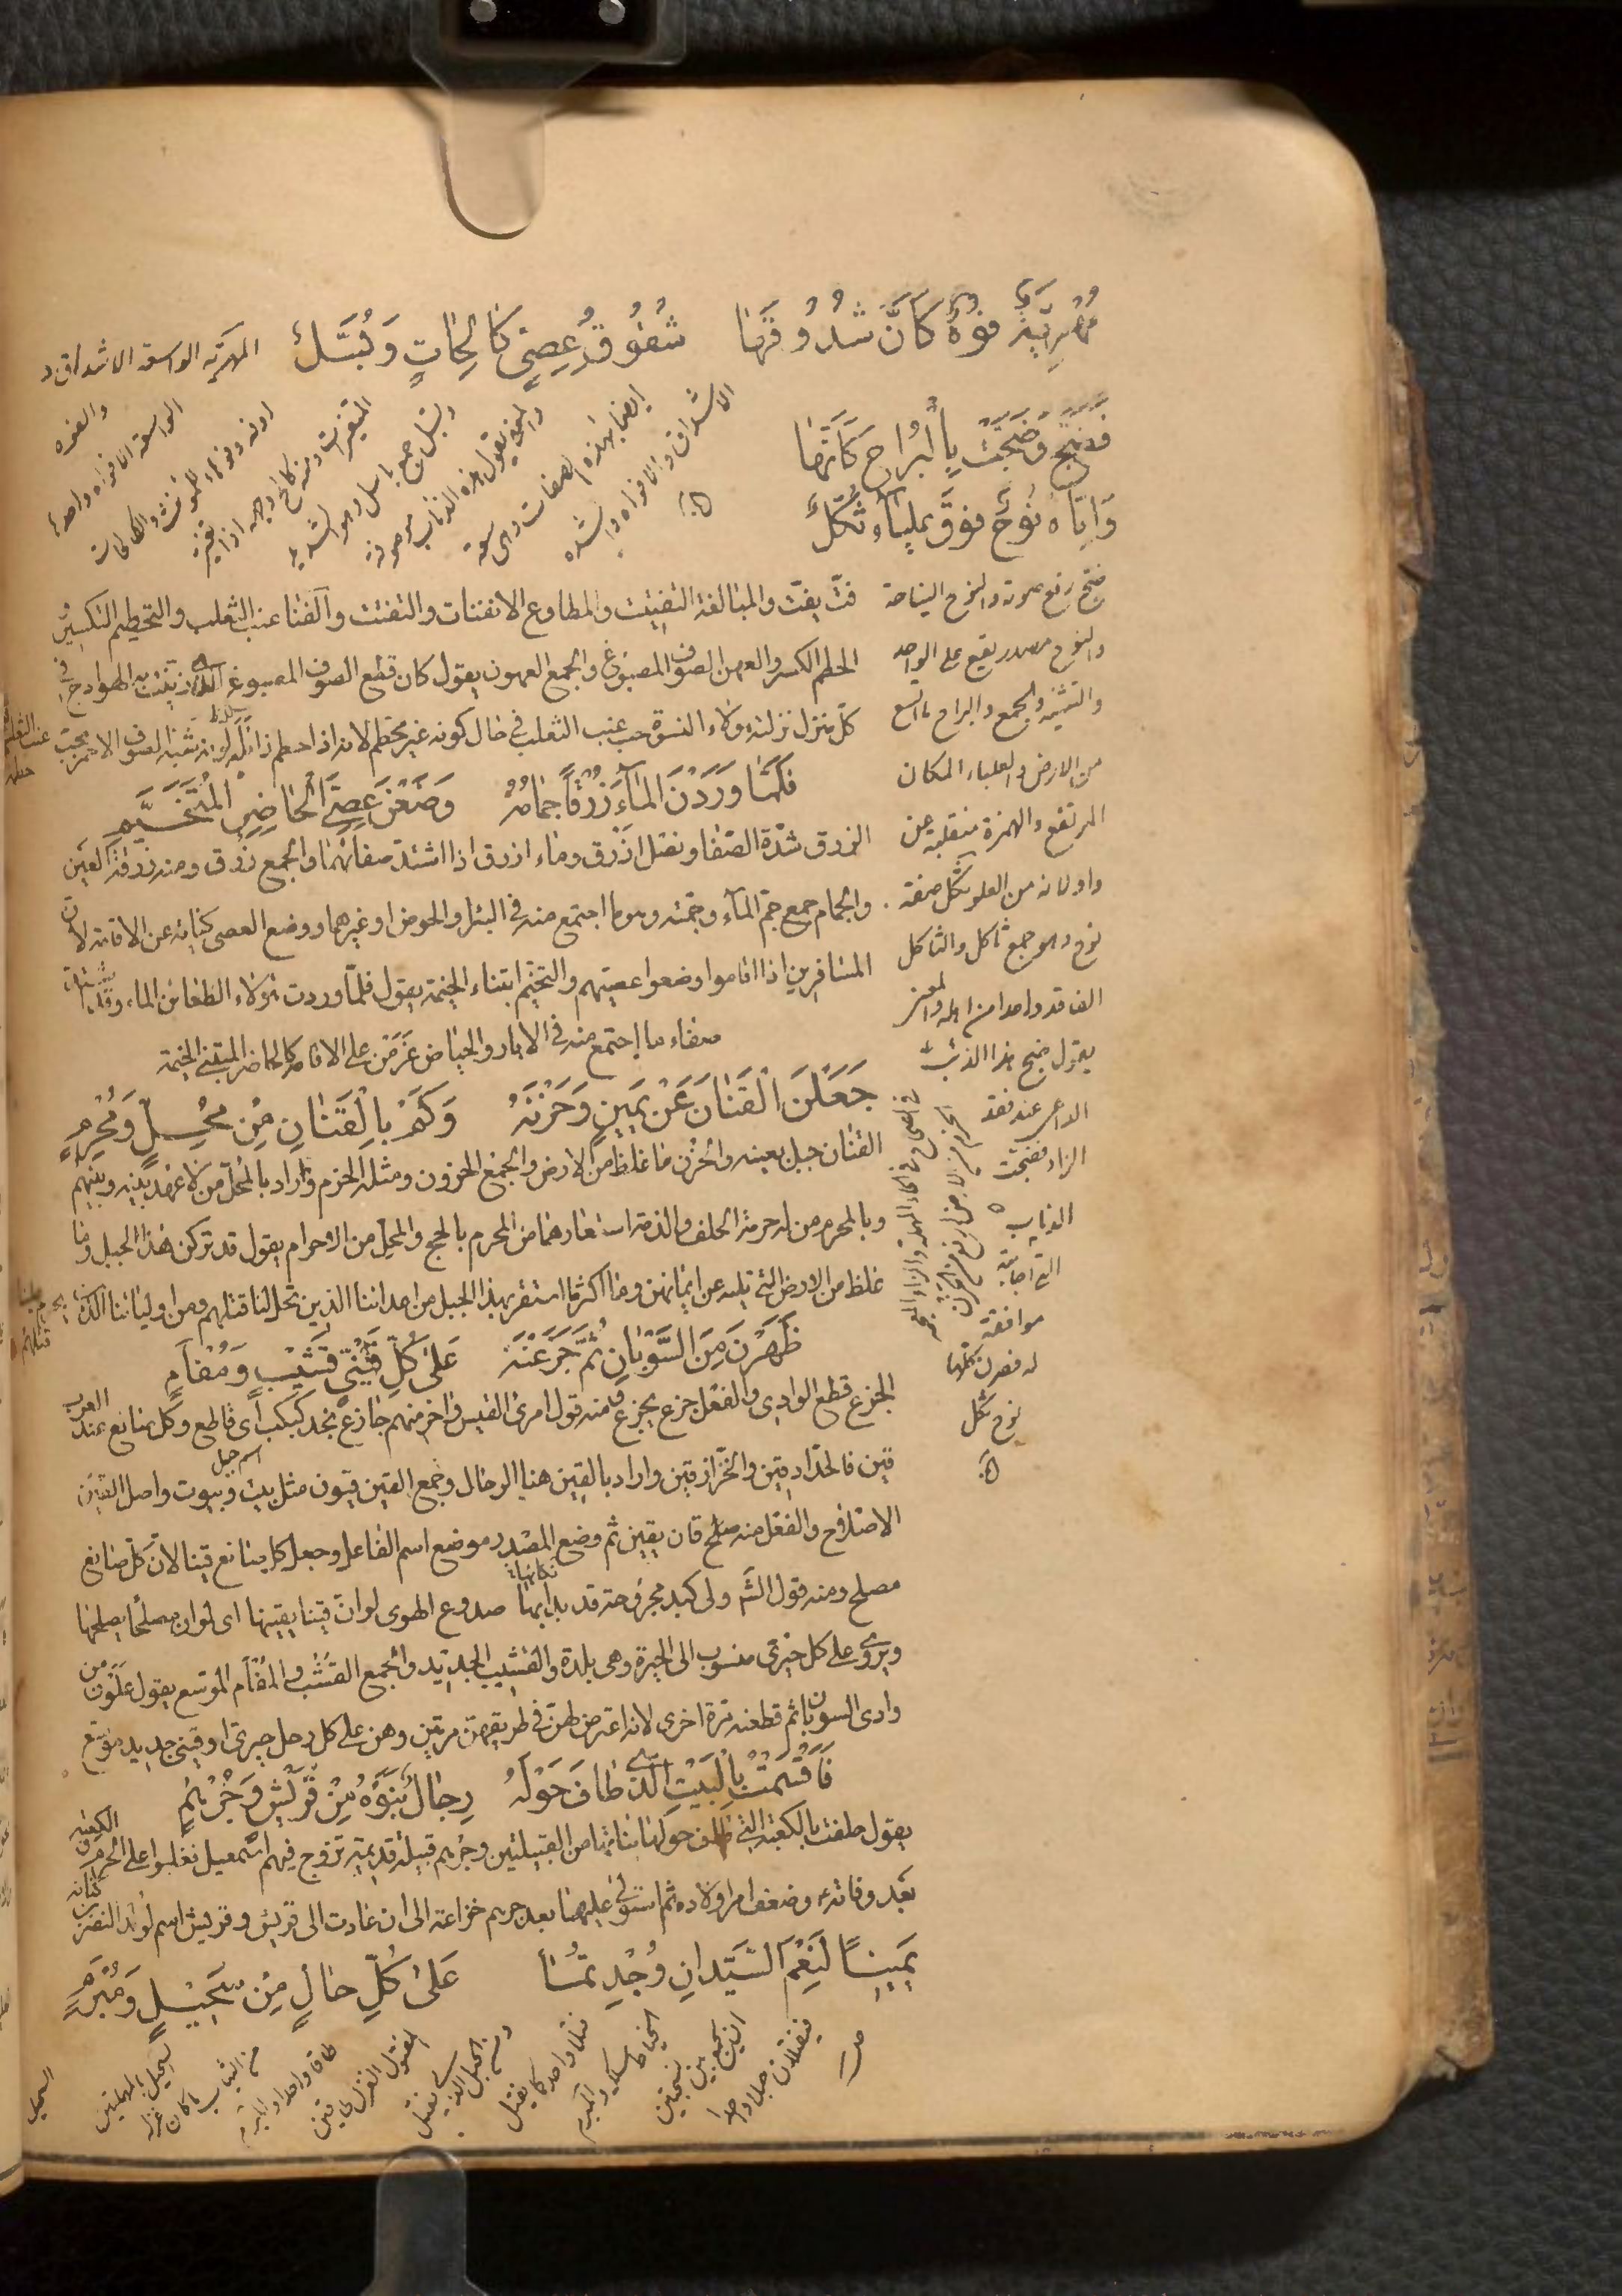 مُهَرَّتَةٌ فُوْهٌ كَاَنَّ شُدُوْقَهَا شُقُوْقُ عِصِيٍّ كَالِحَاتٍ وَبُسَّلُ
المهرته الواسعه الاشداق
والفوه
الواسعة الافواه واحده
فَضَجَّ وَضَجَّتْ بِالْبَرَاحِ كَاَنَّهَا
وَاِيَّاهُ نُوْحٌ فَوْقَ عَلْيَآءَ ثُكَّلُ
ضج رفع صوته والنوح النياحة
والنوح مصدر يقع على الواحد
والتثنيه والجمع والبراح ما اتسع
من الارض والعلياء المكان
المرتفع والهمزة منقلبة عن
واو لانه من العلو ثكل صفة
نوح وهو جمع ثاكل والثاكل
الفاقد واحدا من اهله والمعنى
يقول ضج هذا الذئب
الداعى عند فقد
الزاد فضجت
الذياب
التى اجابته
موافقة
له فصرن كلها
نوح ثكل
فتّ يفتّ والمبالغة التفتيت والمطاوع الانفتات والتفتت والفنا عنب الثعلب والتحطيم التكسير
الحطم الكسر والعهن الصوف المصبوغ والجمع العهون يقول كان قطع الصوف المصبوغ الذى زينت به الهوادج فى
كلّ منزل نزلته هولاء النسوة حب عنب الثعلب فى حال كونه غير محطم لانه اذا حطم زايله لونه شبه الصوف الاحمر بحب
عنب الثعلب
فَلَمَّا وَرَدْنَ الْمَآءَ زُرْقًا جِمَامُهُ وَضَعْنَ عِصِىَّ الْحَاضِرِ الْمُتَخَيِّمِ
الزرق شدّة الصفا ونصل ازرق وماء ازرق اذا اشتدّ صفائهما والجمع زرق ومنه زرقة العين
والجمام جمع جم المآء وجمته وهو ما اجتمع منه فى البئر والحوض او غيرهما ووضع العصى كناية عن الاقامة لان
المسافرين اذا اقاموا وضعوا عصيهم والتخيّم ابتناء الخيمة يقول فلمّا وردت هولاء الظعائن الماء وقد اشتدّت
صفاء ما اجتمع منه فى الابار والحياض عزمن على الاقامة كالحاضر المبتنى الخيمة
جَعَلْنَ الْقَنَانَ عَنْ يَمِيْنٍ وَحَزْنَهُ وَكَمْ بِالْقَنَانِ مِنْ مُحِلٍّ وَمُحْرِمٍ
القنان جبل بعينه والحزن ما غلظ من الارض والجمع الحزون ومثله الحزم واراد بالمحلّ من لا عهد بينه وبينهم
وبالمحرم من له حرمة الحلف والذمة استعارهما من المحرم بالحج والمحل من الاحرام يقول قد تركن هذا الجبل وما
غلظ من الارض التى تليه عن ايمانهن وما اكثر ما استقر بهذا الجبل من اعدائنا الذين تحل لنا قتلهم ومن اوليائنا الذين يحرم علينا
قتلهم
ظَهَرْنَ مِنَ السُّوْبَانِ ثُمَّ جَزَعْنَهُ عَلَى كُلِّ قَيْنِىٍّ قَشِيْبٍ وَمُفْاَمٍ
الجزع قطع الوادى والفعل جزع يجزع ومنه قول امرئ القيس واخر منهم جازع نجد كبكب اى قاطع وكل صانع عند العرب
قين فالحدّاد قين والخرّاز قين واراد بالقين هنا الرحال وجمع القين قيون مثل بيت وبيوت واصل القين
اسم جبل
الاصلاح والفعل منه قان يقين ثم وضع المصدر موضع اسم الفاعل وجعل كل صانع قينا لانّ كلّ صانع
مصلح ومنه قول الشّ ولى كبد مجروحة قد بدا بها صدوع الهوى لو انّ قينا يقينها اى لو ان مصلحا يصلحها
ويروى على كل حيرى منسوب الى الحيرة وهى بلدة والقشيب الجديد والجمع القشب والمفأم الموسع يقول علون من
وادى السوبان ثم قطعنه مرة اخرى لانه اعترض لهن فى طريقهن مرتين وهن على كل رحل حيرى او قينى جديد موسّع
فَاَقْسَمْتُ بِالْبَيْتِ الَّذِىْ طَافَ حَوْلَهُ رِجَالٌ بَنَوْهُ مِنْ قُرَيْشٍ وَجُرْهُمِ
يقول حلفت بالكعبة التى طاف حولها بناتها من القبيلتين وجرهم قبيلة قديمة تزوج فيهم اسمعيل فغلبوا على الكعبة والحرم
بعد وفاته وضعف امر اولاده ثم استولى عليها بعد جرهم خزاعة الى ان عادت الى قريش وقريش اسم لولد النضر بن كنانه
يَمِيْنًا لَنِعْمَ السَّيِّدَانِ وُجِدْتُمَا عَلَى كُلِّ حَالٍ مِنْ سَحِيْلٍ وَمُبْرَمٍ
السحيل